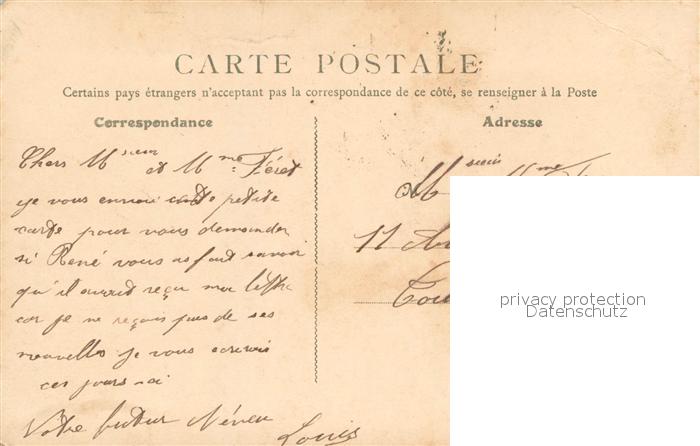 CARTE POSTALE
Certains pays étrangers n'acceptant pas la correspondance de ce côté, se renseigner à la Poste
Correspondance
Chers Msieur et Mme Féret
je vous envoie cette petite
carte pour vous demander
si René vous a fait savoir
qu'il aurait reçu ma lettre
car je ne reçois pas de ses
nouvelles je vous écrirais
ces jours-ci
Votre futur Néveu
Louis
Adresse
Mme
11
privacy protection
Datenschutz